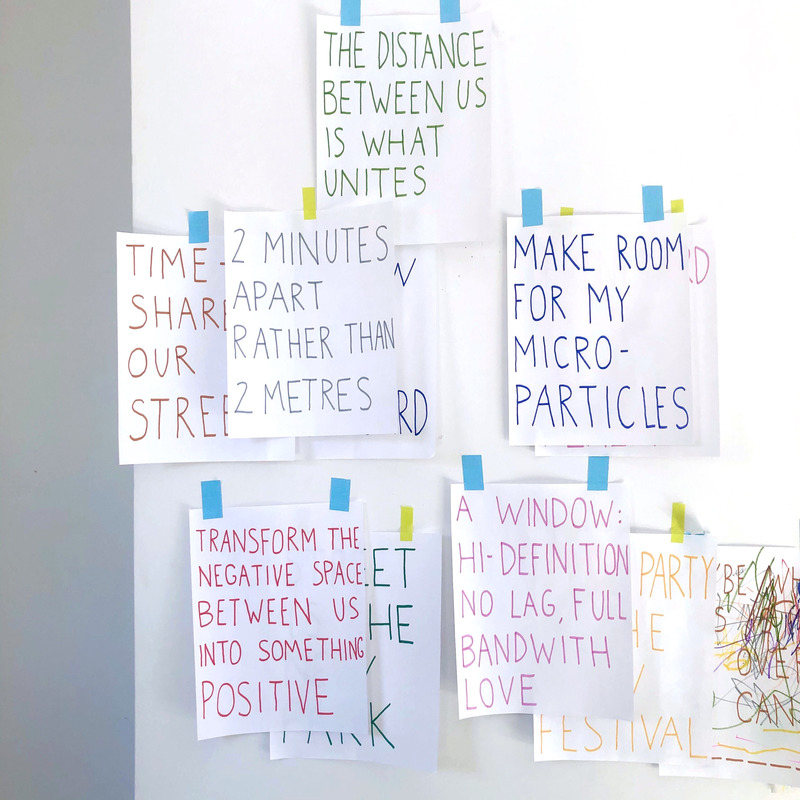 THE DISTANCE
BETWEEN US
IS WHAT
UNITES
TIME-
SHARE
OUR
STREE
2 MINUTES
APART
RATHER THAN
2 METRES
RD
MAKE ROOM
FOR MY
MICRO-
PARTICLES
RD
TRANSFORM THE
NEGATIVE SPACE
BETWEEN US
INTO SOMETHING
POSITIVE
ET
HE
PARK
A WINDOW:
HI-DEFINITION
NO LAG, FULL
BANDWITH
LOVE
PARTY
HE
FESTIVAL
CAN